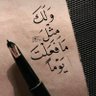 وَلَكَ
مِثلُ
مَا فَعَلتَ
يَومًا